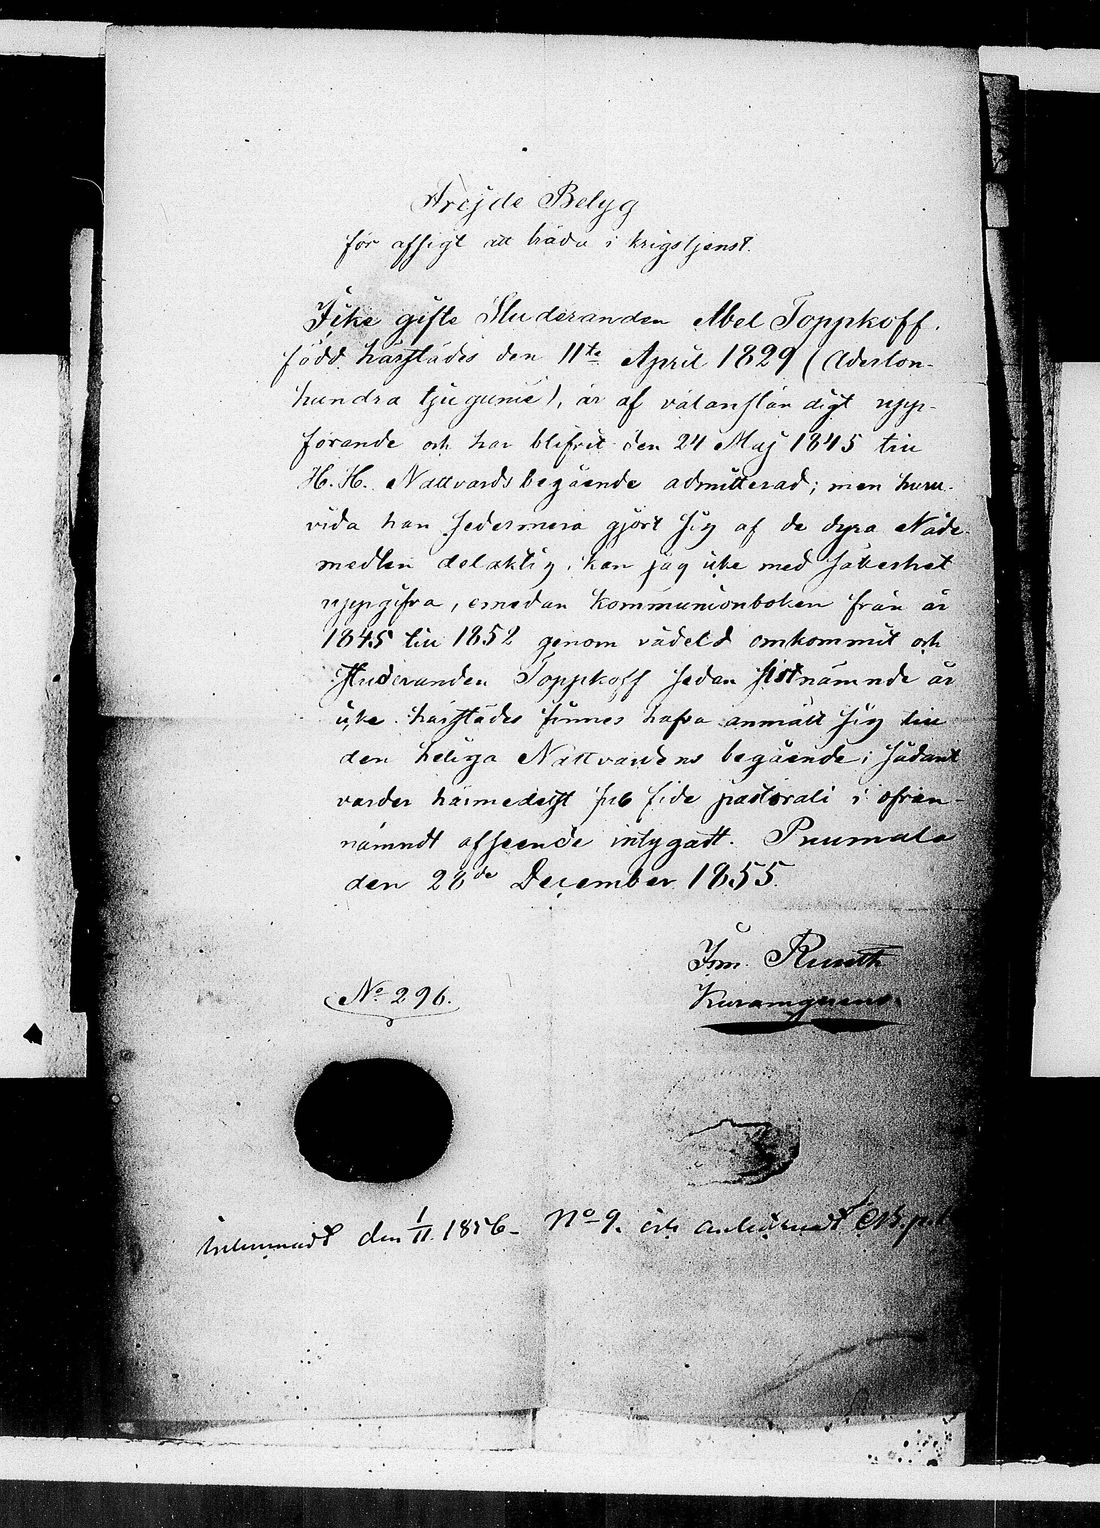 Frejde Betyg
för afsigt att träda i krigstjenst.
Icke gifte Studeranden Abel Toppkoff,
född härstädes den 11te April 1829 (Aderton-
hundra tjugunie), är af välanständigt upp-
förande och har blifvit den 24 Maj 1845 till
H. H. Nattvards begående admitterad; men huru-
vida han sedermera gjort sig af de dyra Nåde-
medlen delaktig, kan jag icke med säkerhet
uppgifva, emedan kommunionboken från år
1845 till 1852 genom vådeld omkommit och
Studeranden Toppkoff sedan sistnämnde år
icke härstädes finnes hafva anmält sig till
den heliga Nattvardens begående; sådant
varder härmedelst sub fide pastorali i ofvan-
nämndt afseende intygadt. Puumala
den 28de December 1855.
Im. Ruuth
No 296.
den 1/II. 1856 - No 9. och